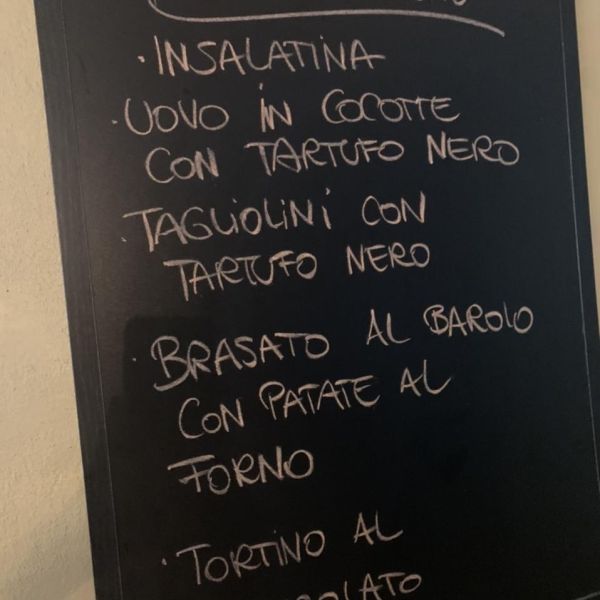 · INSALATINA
· UOVO IN COCOTTE
CON TARTUFO NERO
· TAGLIOLINI CON
TARTUFO NERO
· BRASATO AL BAROLO
CON PATATE AL
FORNO
· TORTINO AL